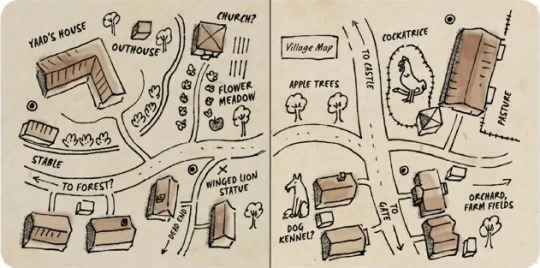 YAAD'S HOUSE
OUTHOUSE
CHURCH?
FLOWER
MEADOW
STABLE
TO FOREST?
WINGED LION
STATUE
DEAD END
Village Map
TO CASTLE
COCKATRICE
APPLE TREES
PASTURE
DOG
KENNEL?
TO
GATE
ORCHARD,
FARM FIELDS